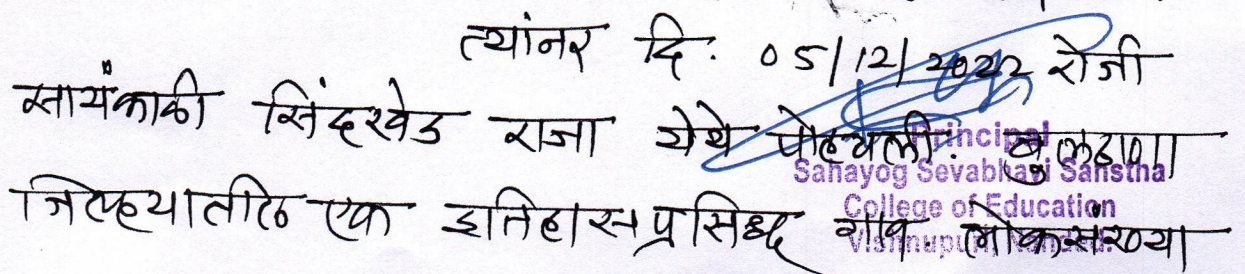 त्यांनर दि. 05/12/2022 रोजी
सायंकाळी सिंदखेड राजा येथे पोहचली. बुलढाणा
जिल्हयातील एक इतिहासप्रसिध्द गाव. लोकसंख्या
Principal
Sahayog Sevabhavi Sanstha
College of Education
Vishnupuri, Nanded.